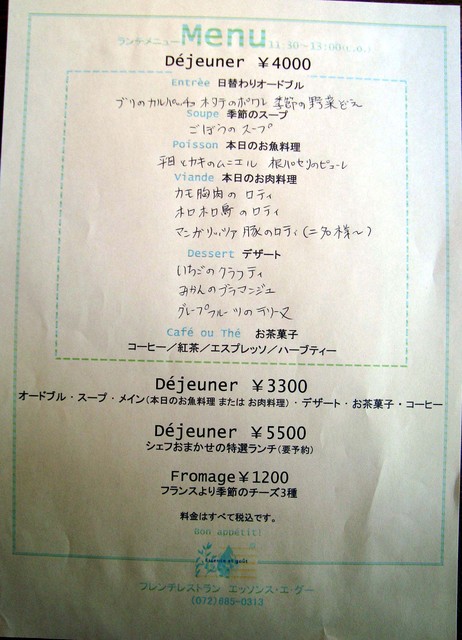 ランチメニュー Menu 11:30～13:00(L.O.)
Déjeuner ￥4000
Entrèe 日替わりオードブル
ブリのカルパッチョ ホタテのポワレ 季節の野菜どえ
Soupe 季節のスープ
ごぼうのスープ
Poisson 本日のお魚料理
平目とカキのムニエル 根パセリのピューレ
Viande 本日のお肉料理
カモ胸肉のロティ
ホロホロ鳥のロティ
マンガリッツァ豚のロティ(二名様～)
Dessert デザート
いちごのクラフティ
みかんのブラマンジェ
グレープフルーツのテリーヌ
Café ou Thé お茶菓子
コーヒー／紅茶／エスプレッソ／ハーブティー
Déjeuner ￥3300
オードブル・スープ・メイン(本日のお魚料理 または お肉料理)・デザート・お茶菓子・コーヒー
Déjeuner ￥5500
シェフおまかせの特選ランチ(要予約)
Fromage￥1200
フランスより季節のチーズ3種
料金はすべて税込です。
Bon appétit!
Essence et goût
フレンチレストラン エッソンス・エ・グー
(072)685-0313